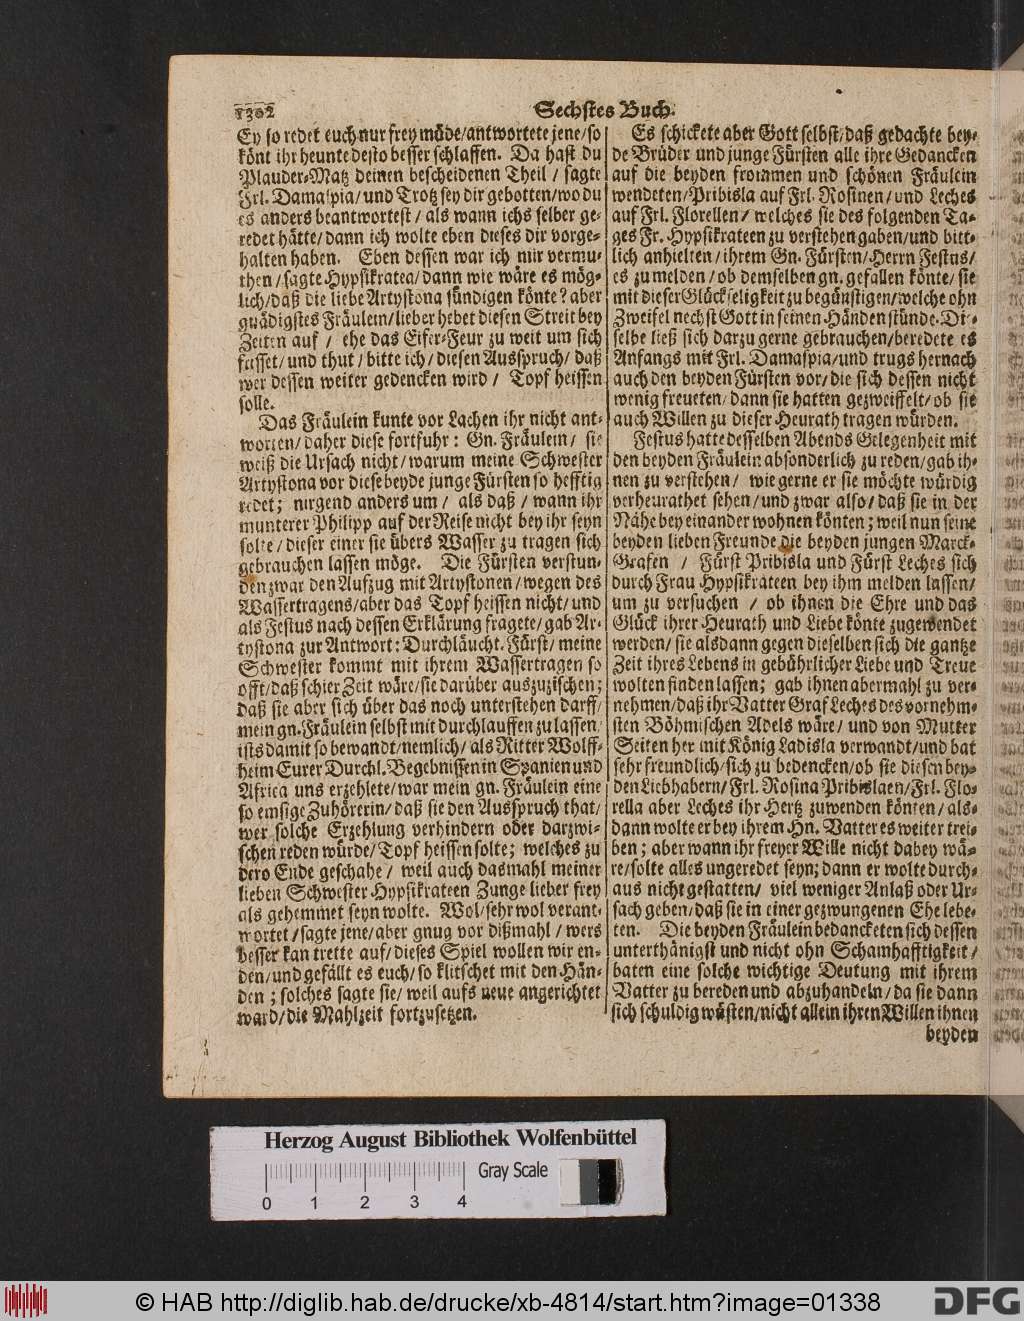 1302
Sechstes Buch.
Ey so redet euch nur frey möde/antwortete jene/so
könt ihr heunte desto besser schlaffen. Da hast du
Plauder-Matz deinen bescheidenen Theil / sagte
Frl. Damaspia/und Trotz sey dir gebotten/wo du
es anders beantwortest / als wann ichs selber ge-
redet hätte/dann ich wolte eben dieses dir vorge-
halten haben. Eben dessen war ich mir vermu-
then/sagte Hypsikratea/dann wie wäre es mög-
lich/daß die liebe Artystona sündigen könte? aber
gnädigstes Fräulein/lieber hebet diesen Streit bey
Zeiten auf / ehe das Eifer-Feur zu weit um sich
fasset/und thut/bitte ich/diesen Ausspruch/daß
wer dessen weiter gedencken wird / Topf heissen
solle.
Das Fräulein kunte vor Lachen ihr nicht ant-
worten/daher diese fortfuhr: Gn. Fräulein/ sie
weiß die Ursach nicht/warum meine Schwester
Artystona vor diese beyde junge Fürsten so hefftig
redet; nirgend anders um / als daß / wann ihr
munterer Philipp auf der Reise nicht bey ihr seyn
solte/dieser einer sie übers Wasser zu tragen sich
gebrauchen lassen möge. Die Fürsten verstun-
den zwar den Aufzug mit Artystonen/wegen des
Wassertragens/aber das Topf heissen nicht/und
als Festus nach dessen Erklärung fragete/gab Ar-
tystona zur Antwort: Durchläucht. Fürst/meine
Schwester kommt mit ihrem Wassertragen so
offt/daß schier Zeit wäre/sie darüber auszuzischen;
daß sie aber sich über das noch unterstehen darff/
mein gn. Fräulein selbst mit durchlauffen zu lassen/
ists damit so bewandt/nemlich/als Ritter Wolff-
heim Eurer Durchl. Begebnissen in Spanien und
Africa uns erzehlete/war mein gn. Fräulein eine
so emsige Zuhörerin/daß sie den Ausspruch that/
wer solche Erzehlung verhindern oder darzwi-
schen reden würde/Topf heissen solte; welches zu
dero Ende geschahe/ weil auch dasmahl meiner
lieben Schwester Hypsikrateen Zunge lieber frey
als gehemmet seyn wolte. Wol/sehr wol verant-
wortet/sagte jene/aber gnug vor dißmahl/wers
besser kan trette auf/dieses Spiel wollen wir en-
den/und gefällt es euch/so klitschet mit den Hän-
den; solches sagte sie/weil aufs neue angerichtet
ward/die Mahlzeit fortzusetzen.
Es schickete aber Gott selbst/daß gedachte bey-
de Brüder und junge Fürsten alle ihre Gedancken
auf die beyden frommen und schönen Fräulein
wendeten/Pribisla auf Frl. Rosinen/und Leches
auf Frl. Florellen/ welches sie des folgenden Ta-
ges Fr. Hypsikrateen zu verstehen gaben/und bitt-
lich anhielten/ihrem Gn. Fürsten/Herrn Festus/
es zu melden/ob demselben gn. gefallen könte/sie
mit dieser Glückseligkeit zu begünstigen/welche ohn
Zweifel nechst Gott in seinen Händen stünde. Die-
selbe ließ sich darzu gerne gebrauchen/beredete es
Anfangs mit Frl. Damaspia/und trugs hernach
auch den beyden Fürsten vor/die sich dessen nicht
wenig freueten/dann sie hatten gezweiffelt/ob sie
auch Willen zu dieser Heurath tragen würden.
Festus hatte desselben Abends Gelegenheit mit
den beyden Fräulein absonderlich zu reden/gab ih-
nen zu verstehen/ wie gerne er sie möchte würdig
verheurathet sehen/und zwar also/daß sie in der
Nähe bey einander wohnen könten; weil nun seine
beyden lieben Freunde die beyden jungen Marck-
Grafen / Fürst Pribisla und Fürst Leches sich
durch Frau Hypsikrateen bey ihm melden lassen/
um zu versuchen / ob ihnen die Ehre und das
Glück ihrer Heurath und Liebe könte zugewendet
werden/sie alsdann gegen dieselben sich die gantze
Zeit ihres Lebens in gebührlicher Liebe und Treue
wolten finden lassen; gab ihnen abermahl zu ver-
nehmen/daß ihr Vatter Graf Leches des vornehm-
sten Böhmischen Adels wäre/ und von Mutter
Seiten her mit König Ladisla verwandt/und bat
sehr freundlich/sich zu bedencken/ob sie diesen bey-
den Liebhabern/Frl. Rosina Pribislaen/Frl. Flo-
rella aber Leches ihr Hertz zuwenden könten/als-
dann wolte er bey ihrem Hn. Vatter es weiter trei-
ben; aber wann ihr freyer Wille nicht dabey wä-
re/solte alles ungeredet seyn; dann er wolte durch-
aus nicht gestatten/ viel weniger Anlaß oder Ur-
sach geben/daß sie in einer gezwungenen Ehe lebe-
ten. Die beyden Fräulein bedancketen sich dessen
unterthänigst und nicht ohn Schamhafftigkeit/
baten eine solche wichtige Deutung mit ihrem
Vatter zu bereden und abzuhandeln/da sie dann
sich schuldig wüsten/nicht allein ihren Willen ihnen
beyden
Herzog August Bibliothek Wolfenbüttel
Gray Scale
0 1 2 3 4
© HAB http://diglib.hab.de/drucke/xb-4814/start.htm?image=01338
DFG